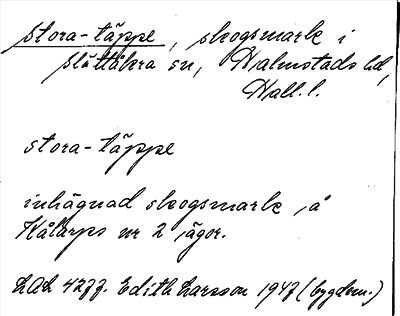 stora-täppe, skogsmark i
Slättåkra sn, Halmstads hd,
Hall.l.
stora-täppe
inhägnad skogsmark å
Kålarps nr 2 ägor.
LAL 4277. Edith Larsson 1947 (bygdem.)